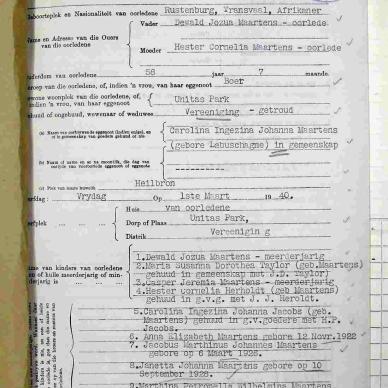 Geboorteplek en Nasionaliteit van oorledene Rustenburg, Transvaal, Afrikaner
Name en Adresse van die Ouers van die oorledene
Vader Dewald Jozua Maartens - oorlede
Moeder Hester Cornelia Maartens - oorlede
Ouderdom van oorledene 58 jaar 7 maande
Beroep van oorledene, of, indien 'n vrou, van haar eggenoot Boer
Gewone woonplek van oorledene, of, indien 'n vrou, van haar eggenoot Unitas Park Vereeniging
Gehuud of ongehuud, wewenaar of weduwee - getroud
(a) Carolina Ingezina Johanna Maartens
(gebore Labuschagne) in gemeenskap
(b) ----------
(c) Plek van laaste huwelik Heilbron
Vrydag Op 1ste Maart 19 40.
Huis van oorledene
Dorp of Plaas Unitas Park,
Distrik Vereeniging
Name van kinders van oorledene en of hulle meerderjarig of minderjarig is
1. Dewald Jozua Maartens - meerderjarig
2. Maria Susanna Dorothea Taylor (geb.Maartens)
gehuud in gemeenskap met J.D. Taylor)
3. Casper Jeremia Maartens - meerderjarig
4. Hester Cornelia Herholdt (geb Maartens)
gehuud in g.v.g. met J. J. Heroldt.
5. Carolina Ingezina Johanna Jacobs (geb.
Maartens) gehuud in g.v.goedere met H.P.
Jacobs.
6. Anna Elizabeth Maartens gebore 12 Novr.1922
7. Jacobus Marthinus Johannes Maartens
gebore op 6 Maart 1926.
8. Janetta Johanna Maartens gebore op 10
September 1928.
9. Marthina Petronella Wilhelmina Maartens